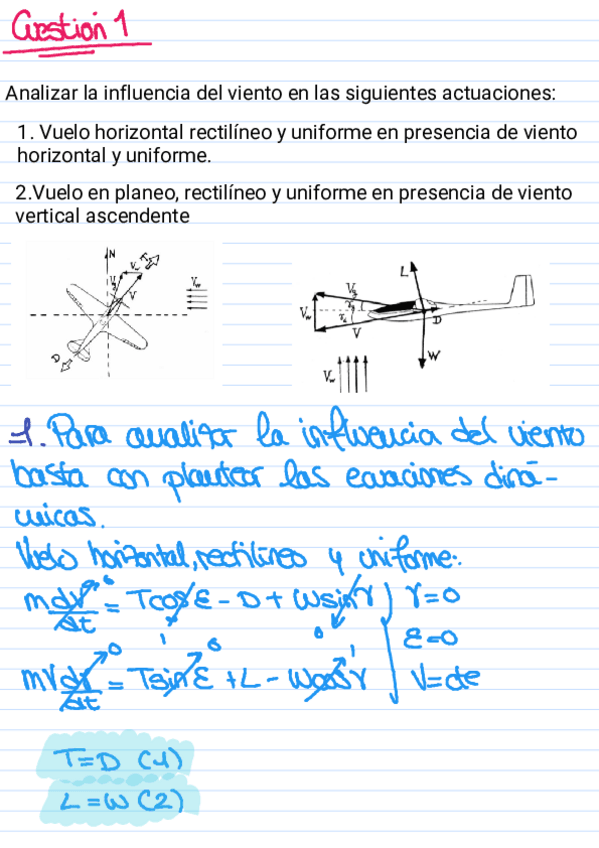 Cuestión 1
Analizar la influencia del viento en las siguientes actuaciones:
1. Vuelo horizontal rectilíneo y uniforme en presencia de viento
horizontal y uniforme.
2.Vuelo en planeo, rectilíneo y uniforme en presencia de viento
vertical ascendente
N
T
Vw
Vg
V
Vw
D
L
Vg
Vw
γg
γa
V
D
W
Vw
1. Para analizar la influencia del viento
basta con plantear las ecuaciones diná-
micas.
Vuelo horizontal, rectilíneo y uniforme:
m dV/dt = T cos ε - D + W sin γ } γ = 0
0 1 0
ε = 0
m V dγ/dt = T sin ε + L - W cos γ } V = cte
0 0 1
T = D (1)
L = W (2)